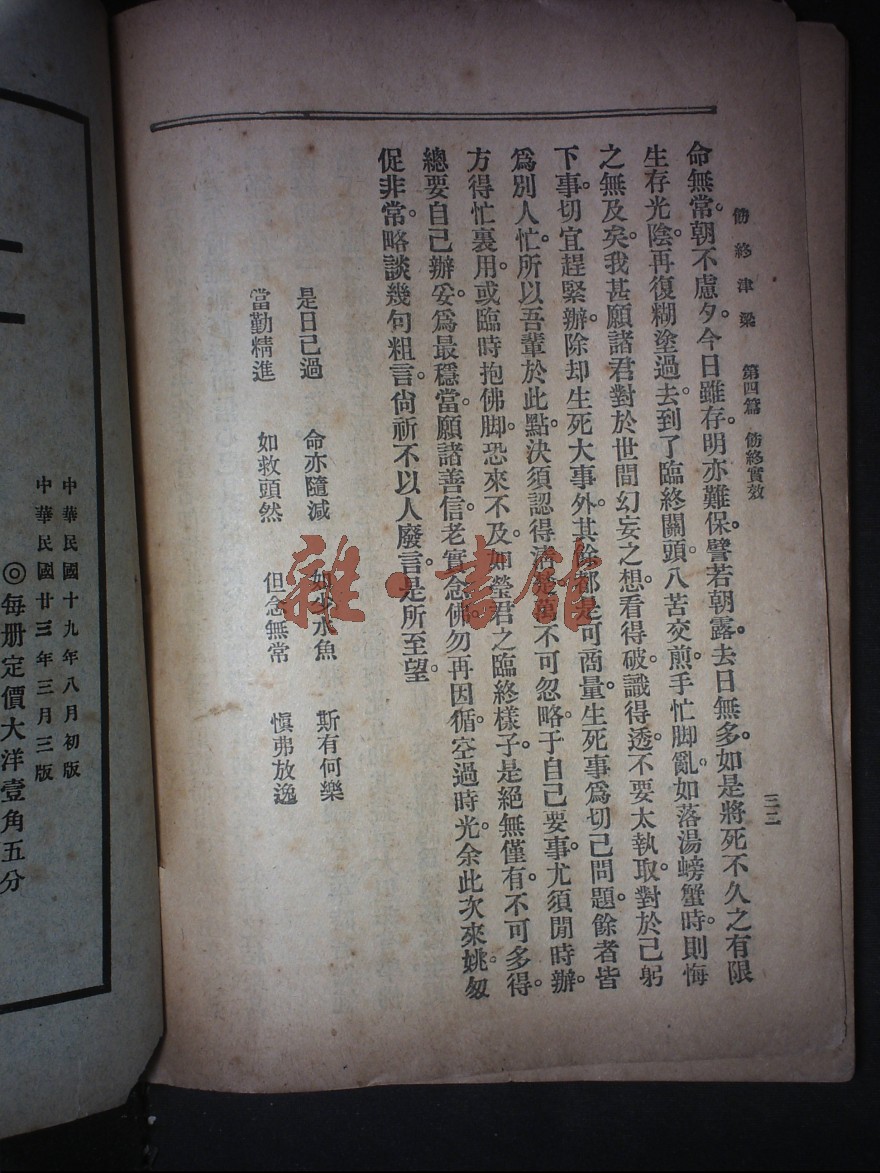 飭終津梁 第四篇 飭終實效
三二
命無常。朝不慮夕。今日雖存。明亦難保。譬若朝露。去日無多。如是將死不久之有限
生存光陰。再復糊塗過去。到了臨終關頭。八苦交煎。手忙脚亂。如落湯螃蟹時。則悔
之無及矣。我甚願諸君對於世間幻妄之想。看得破。識得透。不要太執取。對於己躬
下事。切宜趕緊辦。除却生死大事外。其餘都是可商量。生死事爲切己問題。餘者皆
爲別人忙。所以吾輩於此點。決須認得清楚。萬不可忽略。于自己要事。尤須閒時辦。
方得忙裏用。或臨時抱佛脚。恐來不及。如瑩君之臨終樣子。是絕無僅有。不可多得。
總要自己辦妥。爲最穩當。願諸善信。老實念佛。勿再因循。空過時光。余此次來姚。匆
促非常。略談幾句粗言。尙祈不以人廢言。是所至望。
是日已過 命亦隨減 如少水魚 斯有何樂
當勤精進 如救頭然 但念無常 愼弗放逸
中華民國十九年八月初版
中華民國廿三年三月三版
◎每册定價大洋壹角五分
雜·書館